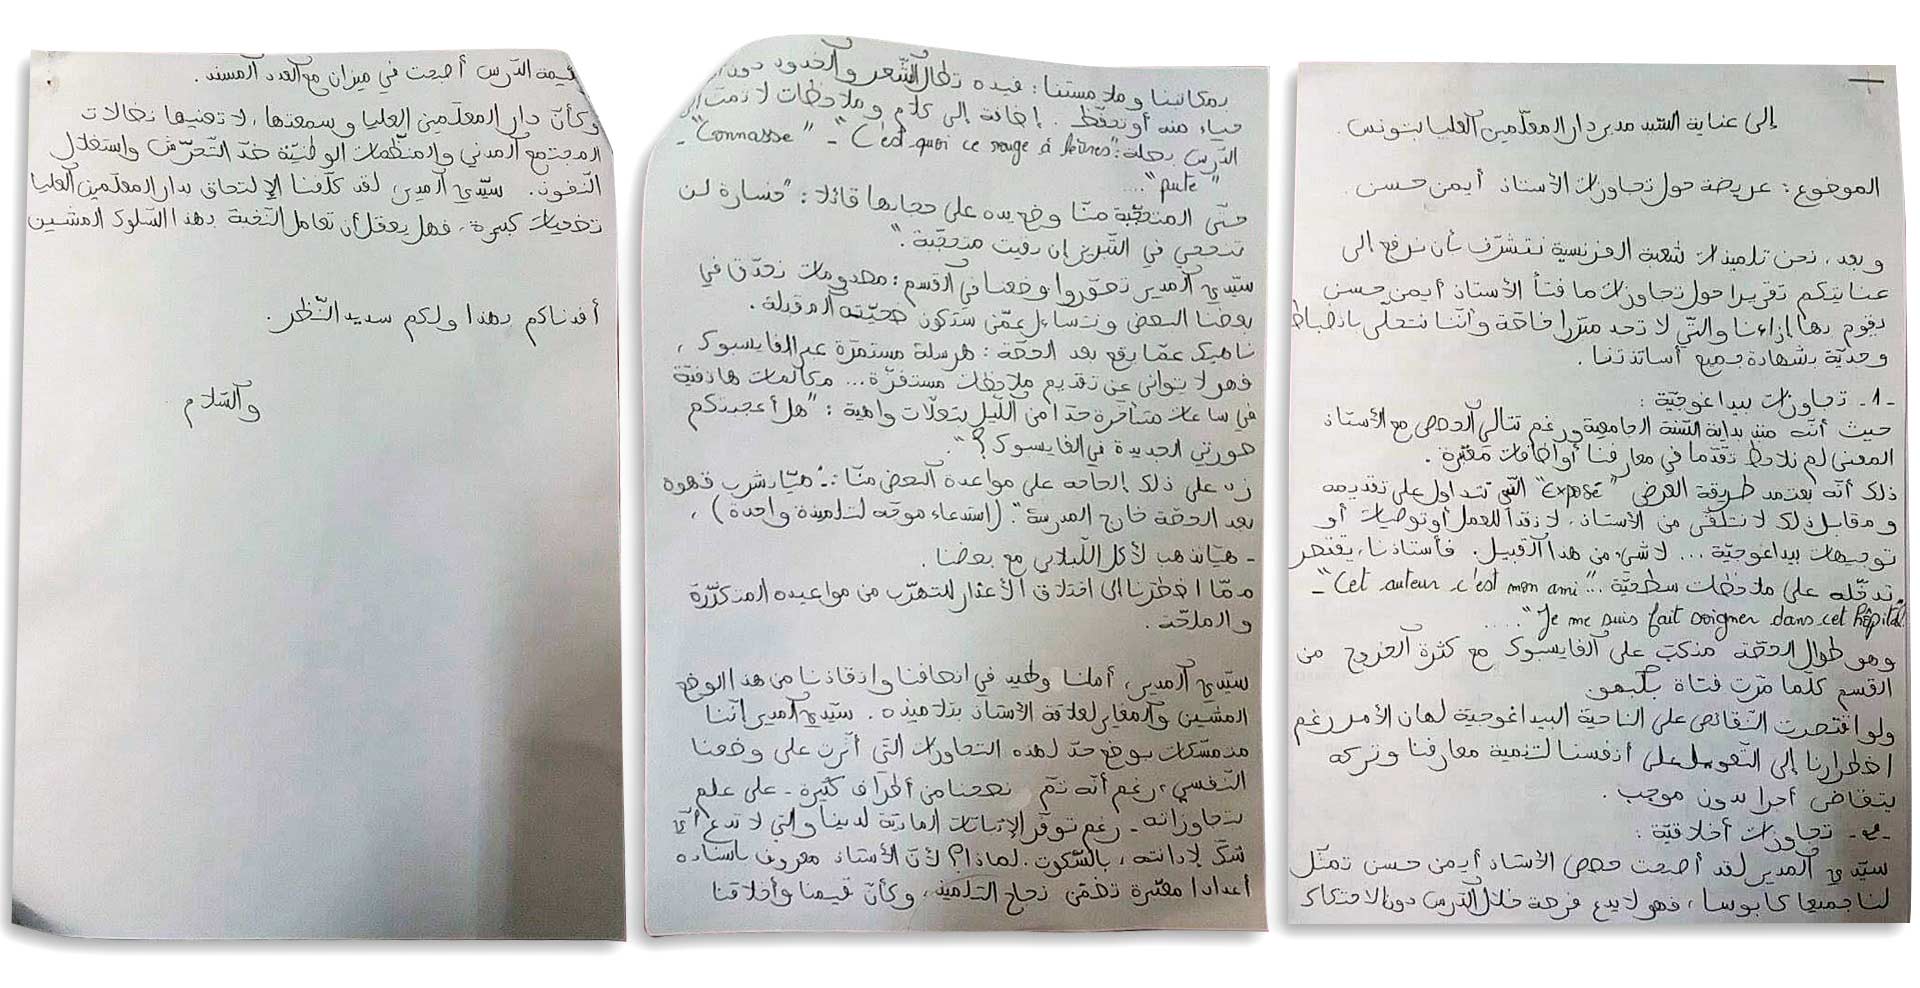 إلى عناية السيّد مدير دار المعلّمين العليا بتونس.
الموضوع: عريضة حول تجاوزات الأستاذ أيمن حسن.
وبعد، نحن تلميذات شعبة الفرنسية نتشرّف بأن نرفع الى
عنايتكم تقريرا حول تجاوزات ما فتأ الأستاذ أيمن حسن
يقوم بها إزاءنا والتّي لا تجد مبرّرا خاصّة وأنّنا نتحلّى بانضباط
وجدّية بشهادة جميع أساتذتنا.
-1- تجاوزات بيداغوجيّة:
حيث أنّه منذ بداية السّنة الجامعية ورغم تتالي الحصص مع الأستاذ
المعني لم نلاحظ تقدّما في معارفنا أو إضافات معتبرة.
ذلك أنّه يعتمد طريقة العرض "Exposé" التّي نتداول على تقديمه
ومقابل ذلك لا نتلقّى من الأستاذ، لا نقدا للعمل أو توصيات أو
توجيهات بيداغوجيّة... لا شيء من هذا القبيل. فأستاذنا، يقتصر
تدخّله على ملاحظات سطحيّة..." Cet auteur c'est mon ami" -
"Je me suis fait soigner dans cet hôpital"....
وهو طوال الحصّة منكبّ على الفايسبوك مع كثرة الخروج من
القسم كلّما مرّت فتاة بالبهو
ولو اقتصرت النّقائص على الناحية البيداغوجيّة لهان الأمر رغم
اضطرارنا إلى التّعويل على أنفسنا لتنمية معارفنا وتركه
يتقاضى أجرا بدون موجب.
-2- تجاوزات أخلاقيّة:
سيّدي المدير لقد أصبحت حصص الأستاذ أيمن حسن تمثّل
لنا جميعا كابوسا، فهو لا يدع فرصة خلال الدّرس دون الاحتكاك
بمكاتبنا وملامستنا: فيده تطال الشّعر والخدود دون
حياء منه أو تحفّظ. إضافة إلى كلام وملاحظات لا تمت إلى
الدّرس بصلة: "C'est quoi ce rouge à lèvres" - "Connasse" -
"pute"....
حتّى المتحجّبة منّا وضع يده على حجابها قائلا: "خسارة لن
تنجحي في التّبريز إن بقيت متحجّبة".
سيّدي المدير تصّوروا وضعنا في القسم: مصدومات نحدّق في
بعضنا البعض ونتساءل عمّن ستكون ضحيّته المقبلة.
ناهيك عمّا يقع بعد الحصّة: هرسلة مستمرّة عبر الفايسبوك،
فهو لا يتوانى عن تقديم ملاحظات مستفزّة... مكالمات هاتفيّة
في ساعات متأخرة جدّا من اللّيل بتعلّات واهية: "هل أعجبتكم
صورتي الجديدة في الفايسبوك؟".
زد على ذلك إلحاحه على مواعدة البعض منّا: - "هيّا نشرب قهوة
بعد الحصّة خارج المدرسة". (استدعاء موجّه لتلميذة واحدة)،
- هيّا نذهب لأكل اللّبلابي مع بعضنا.
ممّا اضطرّنا الى اختلاق الأعذار للتهرّب من مواعيده المتكرّرة
والملحّة.
سيّدي المدير، أملنا وطيد في انصافنا وانقاذنا من هذا الوضع
المشين والمغاير لعلاقة الأستاذ بتلاميذه. سيّدي المدير إنّنا
متمسّكات بوضع حدّ لهذه التجاوزات التّي أثّرت على وضعنا
النّفسي، رغم أنّه تمّ نصحنا من أطراف كثيرة - على علم
بتجاوزاته - رغم توفّر الإثباتات الماديّة لدينا والتي لا تدع أيّ
شكّ لإدانته، بالسّكوت. لماذا؟ لأنّ الأستاذ معروف بإسناده
أعدادا معتبرة تضمن نجاح التلميذ، وكأنّ قيمنا وأخلاقنا
قيمة الدّرس أصبحت في ميزان مع العدد المسند.
وكأنّ دار المعلّمين العليا وسمعتها، لا تعنيها نضالات
المجتمع المدني والمنظّمات الوطنيّة ضدّ التّحرّش واستغلال
النّفوذ. سيّدي المدير لقد كلّفنا الإلتحاق بدار المعلّمين العليا
تضحيات كبيرة، فهل يعقل أن تعامل النّخبة بهذا السّلوك المشين
أفدناكم بهذا ولكم سديد النّظر.
والسّلام